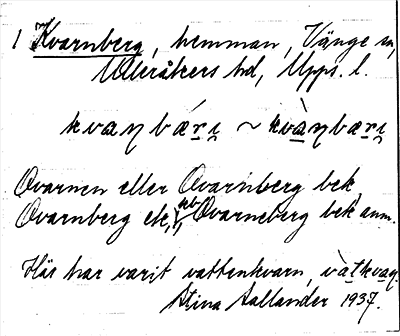 1 Kvarnberg, hemman, Vänge sn,
Ulleråkers hd, Upps. l.
kvaɳbǽri ~ kvàɳbæri
Qvarnen eller Qvarnberg bek
Qvarnberg ek, Qvarneberg bek anm.
Här har varit vattenkvarn, vàtkvaɳ.
Stina Aallander 1937.